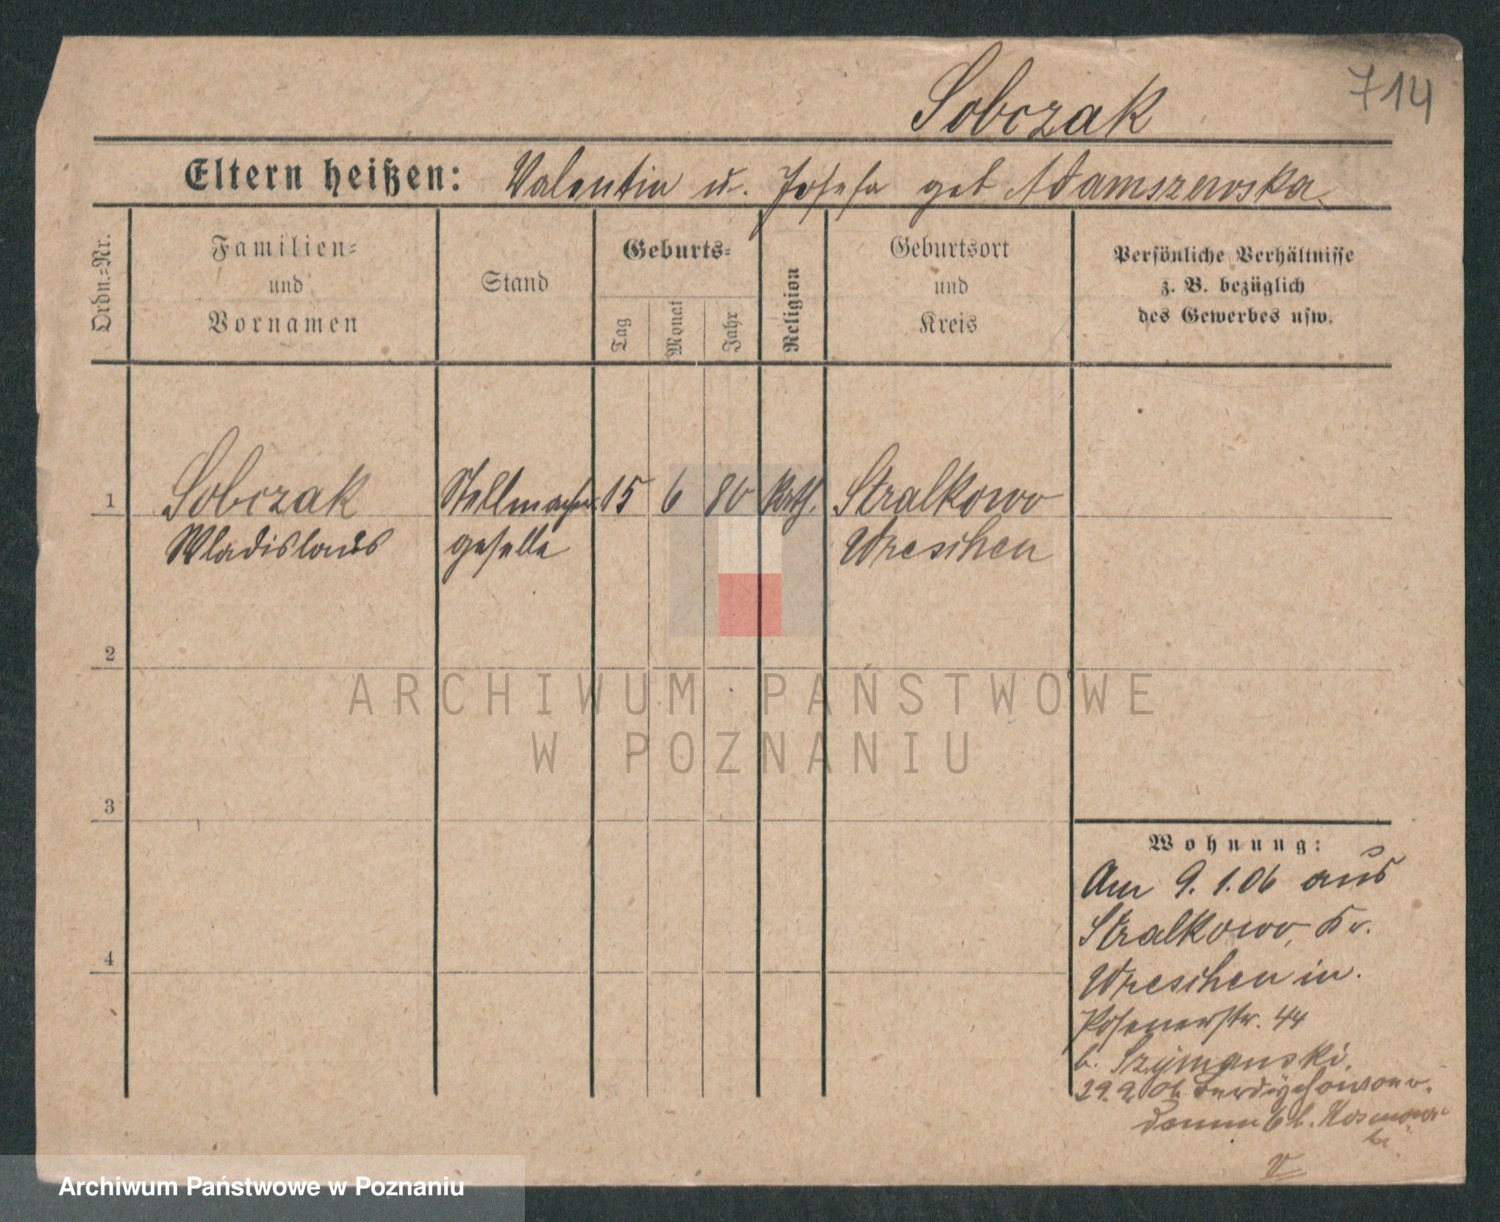 Sobczak
714
Eltern heißen: Valentin u. Josefa geb Adamszewska
Ordn.-Nr.
Familien-
und
Vornamen
Stand
Geburts-
Tag
Monat
Jahr
Religion
Geburtsort
und
Kreis
Persönliche Verhältnisse
z. B. bezüglich
des Gewerbes usw.
1 Sobczak Stellmacher 15 6 80 kath. Stralkowo
Wladislaus geselle Wreschen
2
3
4
Wohnung:
Am 9.1.06 aus
Stralkowo, Kr.
Wreschen in.
Posenerstr. 44
b. Szymanski.
29.9.06
damm 6 b.
ARCHIWUM PAŃSTWOWE
W POZNANIU
Archiwum Państwowe w Poznaniu